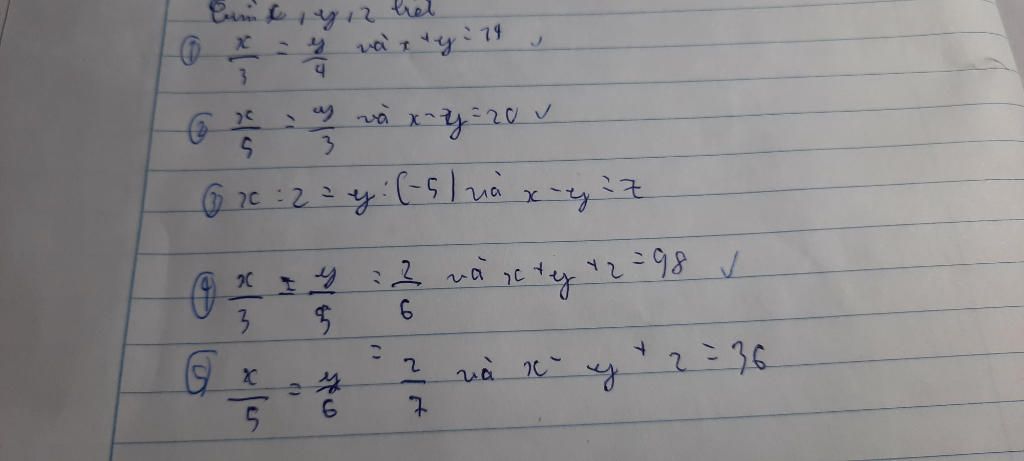 Tìm x, y, z biết
① x/3 = y/4 và x + y = 14 ✓
② x/5 = y/3 và x - y = 20 ✓
③ x : 2 = y : (-5) và x - y = 7
④ x/3 = y/5 = z/6 và x + y + z = 98 ✓
⑤ x/5 = y/6 = z/7 và x - y + z = 36